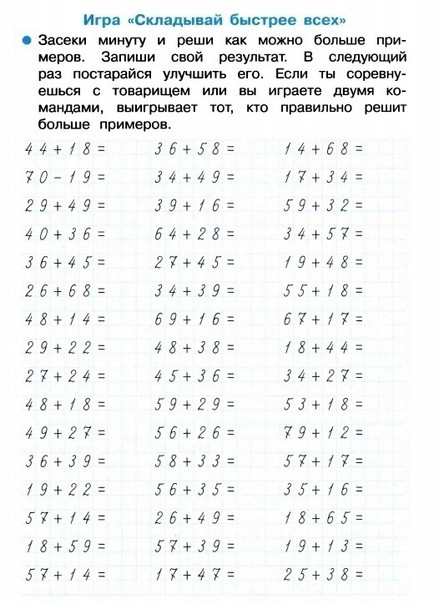 Игра «Складывай быстрее всех»
Засеки минуту и реши как можно больше при-
меров. Запиши свой результат. В следующий
раз постарайся улучшить его. Если ты соревну-
ешься с товарищем или вы играете двумя ко-
мандами, выигрывает тот, кто правильно решит
больше примеров.
44+18= 36+58= 14+68=
70-19= 34+49= 17+34=
29+49= 39+16= 59+32=
40+36= 64+28= 34+57=
36+45= 27+45= 19+48=
26+68= 34+39= 55+18=
48+14= 69+16= 67+17=
29+22= 48+38= 18+44=
27+24= 45+36= 34+27=
48+18= 59+29= 53+18=
49+27= 56+26= 79+12=
36+39= 58+33= 57+17=
19+22= 56+35= 35+16=
57+14= 26+49= 18+65=
18+59= 57+39= 19+13=
57+14= 17+47= 25+38=